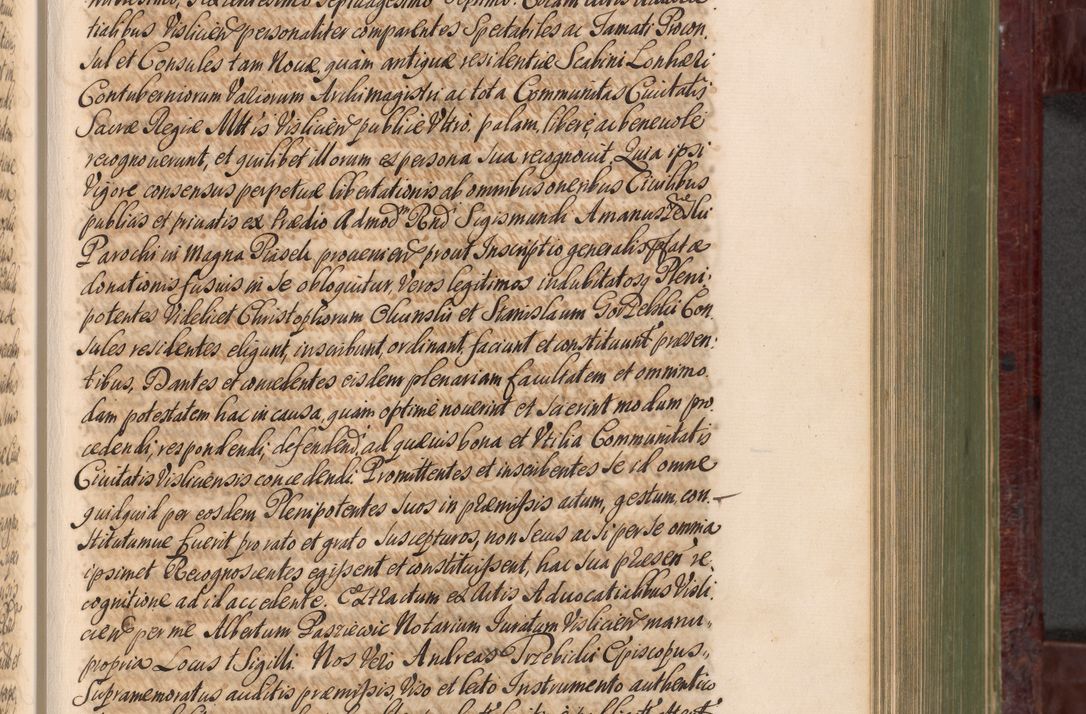 millesimo, sexcentesimo septuagesimo septimo. Coram actis Advoca
tialibus Vislicien personaliter comparentes Spectabiles ac Famati Procon
sul et Consules tam Novæ, quam antiquæ residentiæ Scabini Lonhæri
Contuberniorum Variorum Archimagistri ac tota Communitas Civitatis
Sacræ Regiæ Mttis Vislicien publice Vtro, palam, libere, ac benevole
recognoverunt, et quilibet illorum ex persona sua recognovit, Quia ipsi
Vigore consensus perpetuæ libertationis ab omnibus oneribus Civilibus
publicis et privatis ex Prædio Admodm Rndi Sigismundi Amanuszewski
Parochi in Magna Piasek provenien prout Inscriptio generalis pfatæ
donationis fusius in se obloquitur, Veros legitimos indubitatosq Pleni
potentes Videlicet Christophorum Oliunskii et Stanislaum Gorzelskii Con
sules residentes eligunt, inscribunt, ordinant, faciunt et constituunt præsen:
tibus, Dantes et concedentes eisdem plenariam facultatem et omnimo
dam potestatem hac in causa, quam optime noverint et scierint modum pro
cedendi, respondendi, defendendi, ad quævis bona et Vtilia Communitatis
Civitatis Visliciensis concedendi. Promittentes et inscribentes se id omne
quidquid per eosdem Plenipotentes suos in præmissis actum, gestum, con
stitutumve fuerit pro rato et grato suscepturos, non secus ac si per se omnia
ipsimet Recognoscentes egissent et constituissent, hac sua præsen re
cognitione ad id accedente. Extractum ex Actis Advocatialibus Visli
cien per me Albertum Pasziewic Notarium Juratum Vislicien manu
propria Locus + Sigilli. Nos Vero Andreas Trzebicki Episcopus
Supramemoratus auditis præmissis, Viso et lecto Instrumento authentico